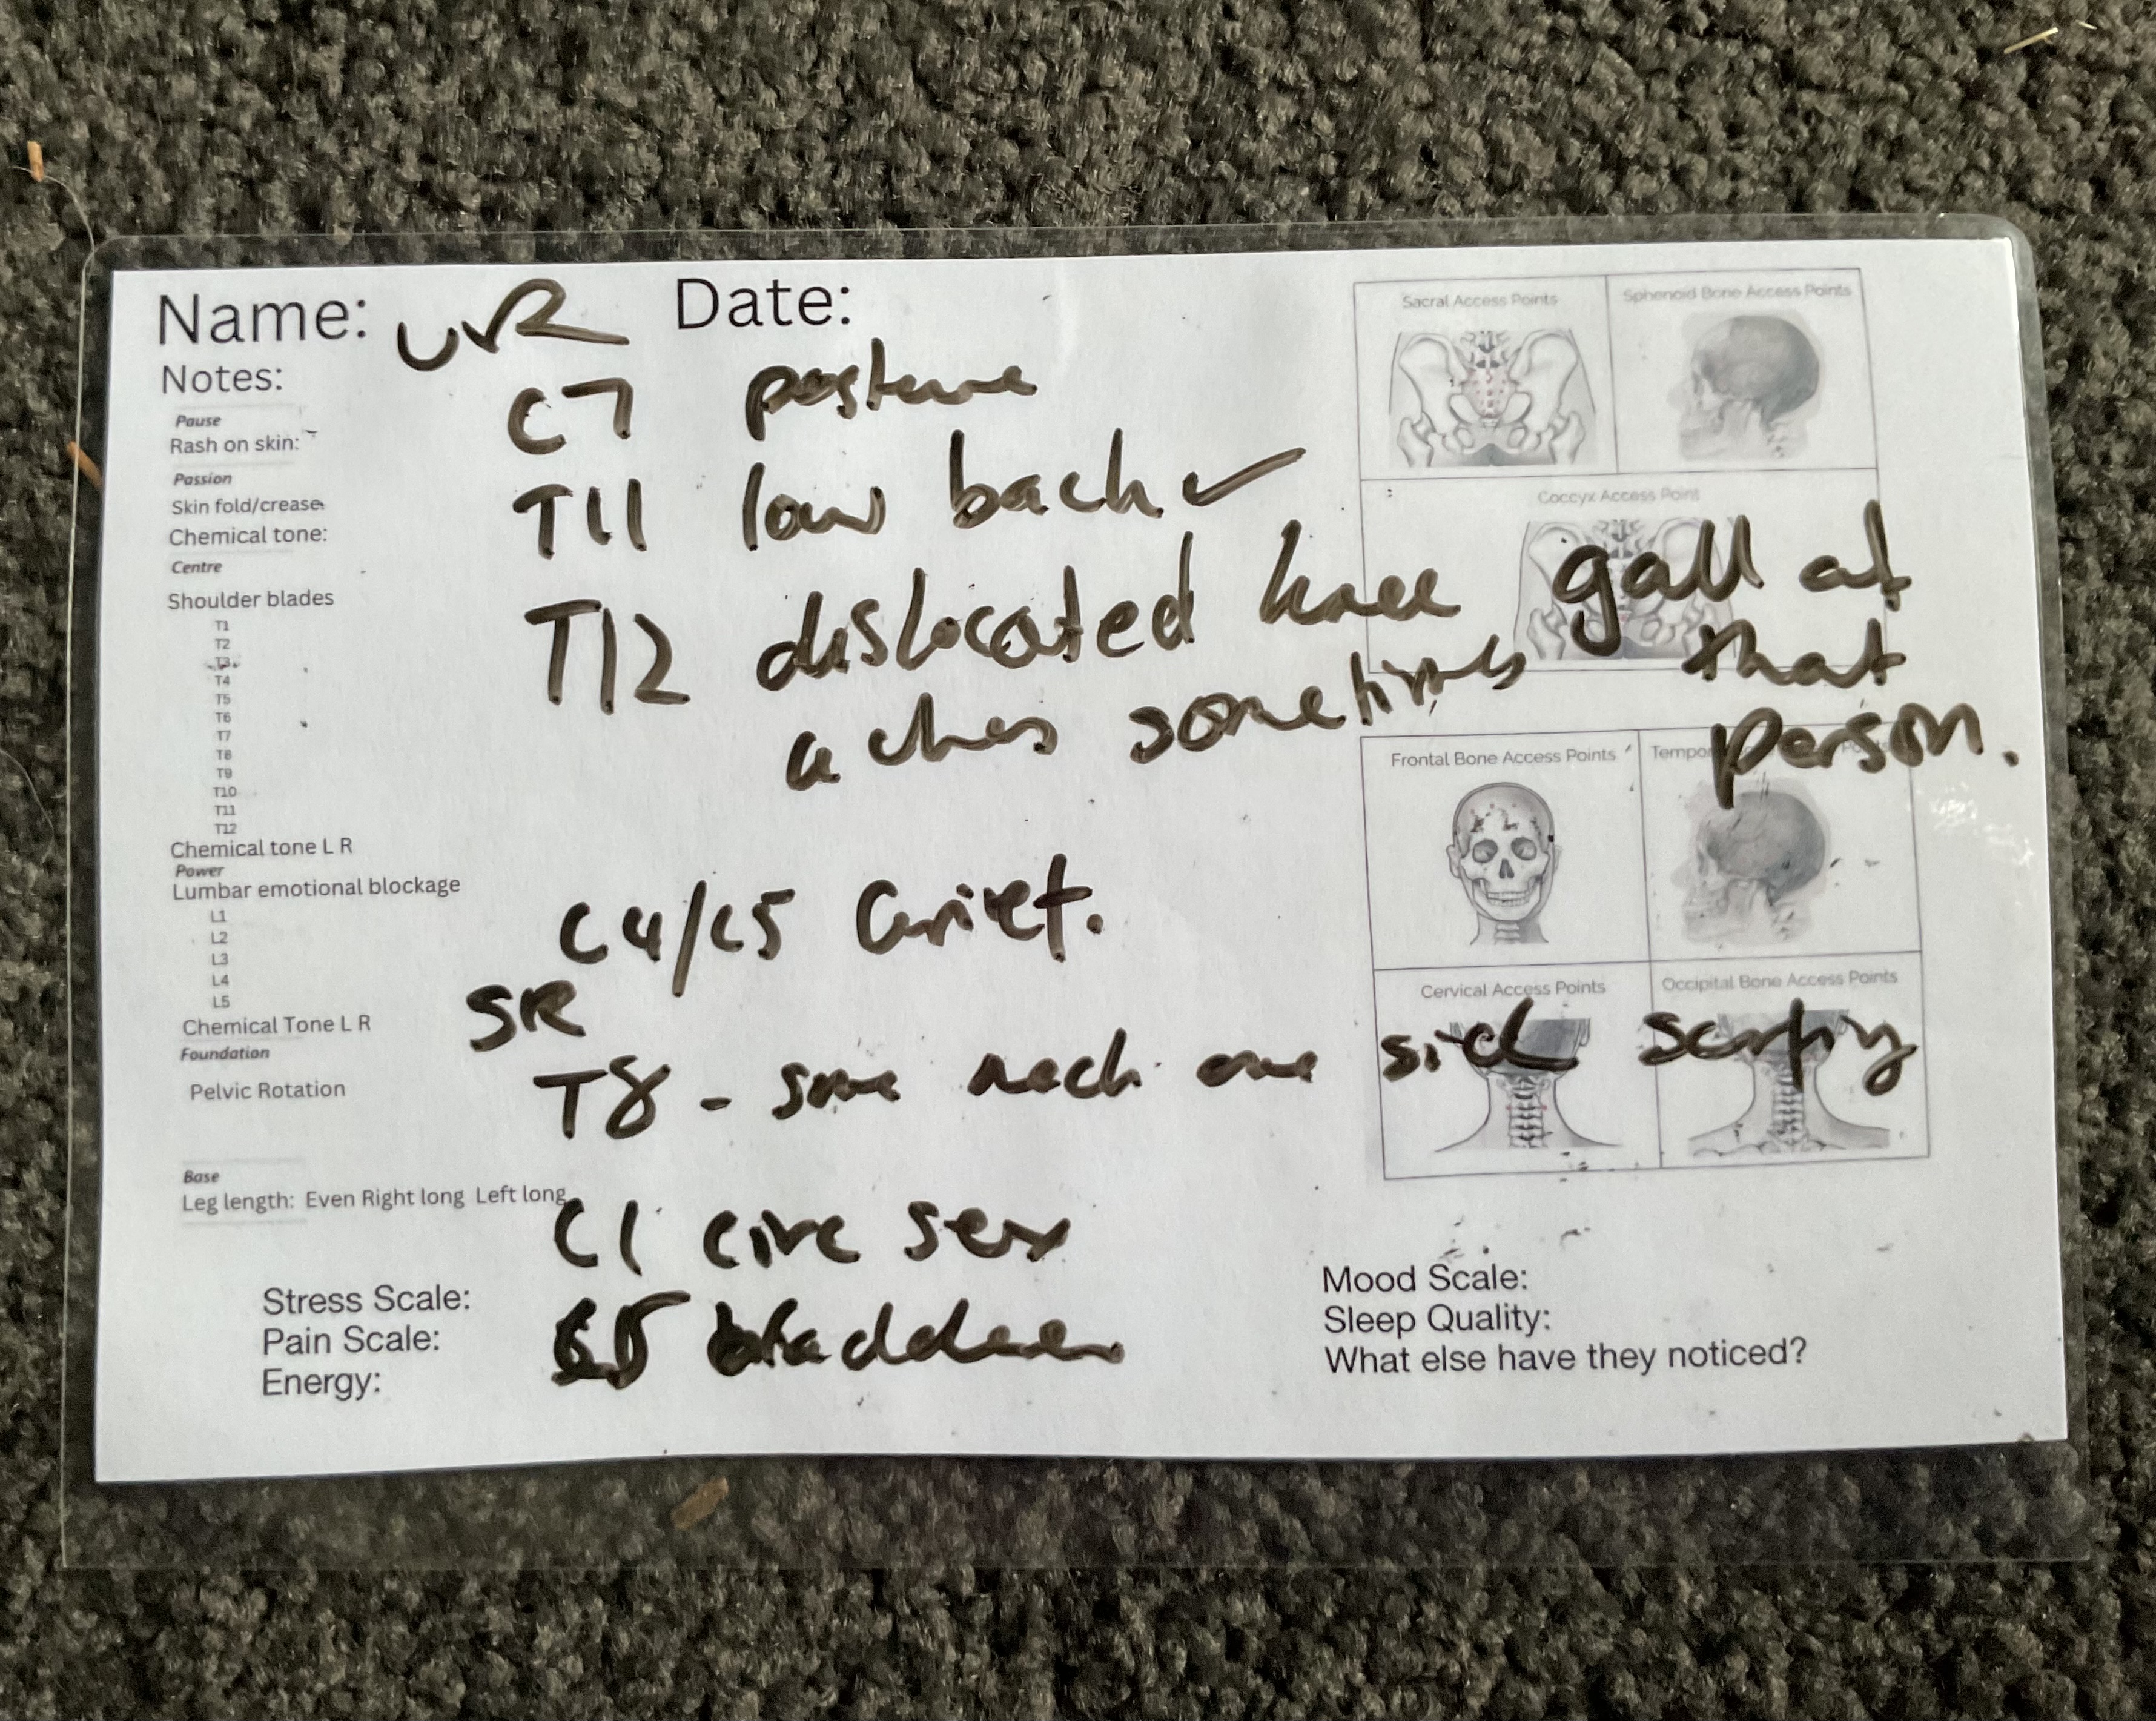 Name: UR Date:
Notes:
C7 posture
Pause
Rash on skin:
Passion
Skin fold/crease
T11 low back ✓
Chemical tone:
Centre
Shoulder blades
T12 dislocated knee gall at
aches sometimes that
person.
T1
T2
T3
T4
T5
T6
T7
T8
T9
T10
T11
T12
Chemical tone L R
Power
Lumbar emotional blockage
C4/C5 Grief.
L1
L2
L3
L4
L5
Chemical Tone L R
SR
Foundation
T8 - some neck one side
Pelvic Rotation
Base
Leg length: Even Right long Left long
C1 circ sex
Stress Scale:
Pain Scale:
bladder
Energy:
Sacral Access Points
Sphenoid Bone Access Points
Coccyx Access Point
Frontal Bone Access Points
Cervical Access Points
Occipital Bone Access Points
Mood Scale:
Sleep Quality:
What else have they noticed?